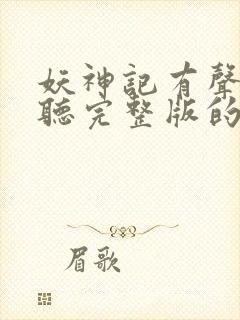 妖神記有聲
聽完整版的
眉歌